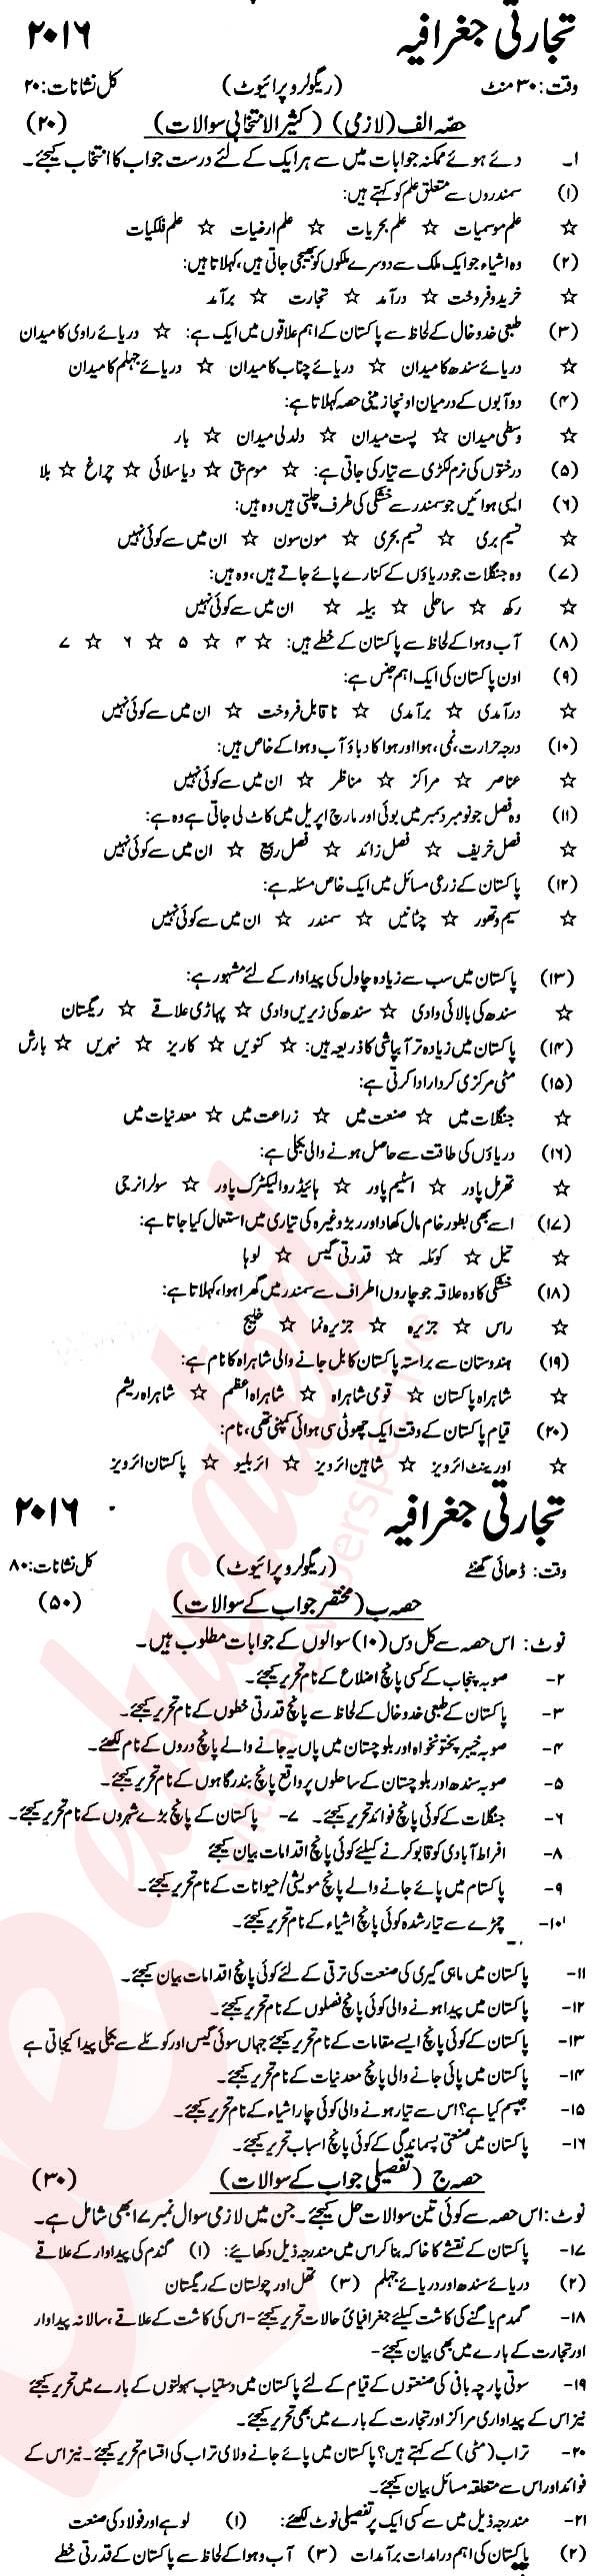 تجارتی جغرافیہ ۲۰۱۶
وقت: ۳۰ منٹ (ریگولر و پرائیوٹ) کل نشانات: ۲۰
حصّہ الف (لازمی) (کثیر الانتخابی سوالات) (۲۰)
۱۔ دئے ہوئے ممکنہ جوابات میں سے ہر ایک کے لئے درست جواب کا انتخاب کیجئے۔
(۱) سمندروں سے متعلق علم کو کہتے ہیں:
☆ علم موسمیات ☆ علم بحریات ☆ علم ارضیات ☆ علم فلکیات
(۲) وہ اشیاء جو ایک ملک سے دوسرے ملکوں کو بھیجی جاتی ہیں، کہلاتا ہیں:
☆ خرید و فروخت ☆ درآمد ☆ تجارت ☆ برآمد
(۳) طبعی خدوخال کے لحاظ سے پاکستان کے اہم علاقوں میں ایک ہے: ☆ دریائے راوی کا میدان
☆ دریائے سندھ کا میدان ☆ دریائے چناب کا میدان ☆ دریائے جہلم کا میدان
(۴) دو آبوں کے درمیان اونچا زمینی حصہ کہلاتا ہے:
☆ وسطی میدان ☆ پست میدان ☆ دلدلی میدان ☆ بار
(۵) درختوں کی نرم لکڑی سے تیار کی جاتی ہے: ☆ موم بتی ☆ دیا سلائی ☆ چراغ ☆ بلا
(۶) ایسی ہوائیں جو سمندر سے خشکی کی طرف چلتی ہیں وہ ہیں:
☆ نسیم بری ☆ نسیم بحری ☆ مون سون ☆ ان میں سے کوئی نہیں
(۷) وہ جنگلات جو دریاؤں کے کنارے پائے جاتے ہیں، وہ ہیں:
☆ رکھ ☆ ساحلی ☆ بیلہ ☆ ان میں سے کوئی نہیں
(۸) آب و ہوا کے لحاظ سے پاکستان کے خطے ہیں: ☆ ۴ ☆ ۵ ☆ ۶ ☆ ۷
(۹) اون پاکستان کی ایک اہم جنس ہے:
☆ درآمدی ☆ برآمدی ☆ ناقابل فروخت ☆ ان میں سے کوئی نہیں
(۱۰) درجہ حرارت، نمی، ہوا اور ہوا کا دباؤ آب و ہوا کے خاص ہیں:
☆ عناصر ☆ مراکز ☆ مناظر ☆ ان میں سے کوئی نہیں
(۱۱) وہ فصل جو نومبر دسمبر میں بوئی اور مارچ اپریل میں کاٹ لی جاتی ہے وہ ہے:
☆ فصل خریف ☆ فصل زائد ☆ فصل ربیع ☆ ان میں سے کوئی نہیں
(۱۲) پاکستان کے زرعی مسائل میں ایک خاص مسئلہ ہے:
☆ سیم و تھور ☆ چٹانیں ☆ سمندر ☆ ان میں سے کوئی نہیں
(۱۳) پاکستان میں سب سے زیادہ چاول کی پیداوار کے لئے مشہور ہے:
☆ سندھ کی بالائی وادی ☆ سندھ کی زیریں وادی ☆ پہاڑی علاقے ☆ ریگستان
(۱۴) پاکستان میں زیادہ تر آبپاشی کا ذریعہ ہیں: ☆ کنویں ☆ کاریز ☆ نہریں ☆ بارش
(۱۵) مٹی مرکزی کردار ادا کرتی ہے:
☆ جنگلات میں ☆ صنعت میں ☆ زراعت میں ☆ معدنیات میں
(۱۶) دریاؤں کی طاقت سے حاصل ہونے والی بجلی ہے:
☆ تھرمل پاور ☆ اسٹیم پاور ☆ ہائیڈرو الیکٹرک پاور ☆ سولر انرجی
(۱۷) اسے بھی بطور خام مال کھاد اور ربڑ وغیرہ کی تیاری میں استعمال کیا جاتا ہے:
☆ تیل ☆ کوئلہ ☆ قدرتی گیس ☆ لوہا
(۱۸) خشکی کا وہ علاقہ جو چاروں اطراف سے سمندر میں گھرا ہوا، کہلاتا ہے:
☆ راس ☆ جزیرہ ☆ جزیرہ نما ☆ خلیج
(۱۹) ہندوستان سے براستہ پاکستان کابل جانے والی شاہراہ کا نام ہے:
☆ شاہراہ پاکستان ☆ قومی شاہراہ ☆ شاہراہ اعظم ☆ شاہراہ ریشم
(۲۰) قیام پاکستان کے وقت ایک چھوٹی سی ہوائی کمپنی تھی، نام:
☆ اورینٹ ائرویز ☆ شاہین ائرویز ☆ ائر بلیو ☆ پاکستان ائرویز
تجارتی جغرافیہ ۲۰۱۶
وقت: ڈھائی گھنٹے (ریگولر و پرائیوٹ) کل نشانات: ۸۰
حصہ ب (مختصر جواب کے سوالات) (۵۰)
نوٹ: اس حصہ سے کل دس (۱۰) سوالوں کے جوابات مطلوب ہیں۔
۲- صوبہ پنجاب کے کسی پانچ اضلاع کے نام تحریر کیجئے۔
۳- پاکستان کے طبعی خدوخال کے لحاظ سے پانچ قدرتی خطوں کے نام تحریر کیجئے۔
۴- صوبہ خیبر پختونخواہ اور بلوچستان میں پاں یہ جانے والے پانچ دروں کے نام لکھئے۔
۵- صوبہ سندھ اور بلوچستان کے ساحلوں پر واقع پانچ بندرگاہوں کے نام تحریر کیجئے۔
۶- جنگلات کے کوئی پانچ فوائد تحریر کیجئے۔ ۷- پاکستان کے پانچ بڑے شہروں کے نام تحریر کیجئے۔
۸- افراط آبادی کو قابو کرنے کیلئے کوئی پانچ اقدامات بیان کیجئے
۹- پاکستام میں پائے جانے والے پانچ مویشی/حیوانات کے نام تحریر کیجئے۔
۱۰- چمڑے سے تیار شدہ کوئی پانچ اشیاء کے نام تحریر کیجئے۔
۱۱- پاکستان میں ماہی گیری کی صنعت کی ترقی کے لئے کوئی پانچ اقدامات بیان کیجئے۔
۱۲- پاکستان میں پیدا ہونے والی کوئی پانچ فصلوں کے نام تحریر کیجئے۔
۱۳- پاکستان کے کوئی پانچ ایسے مقامات کے نام تحریر کیجئے جہاں سوئی گیس اور کوئلے سے بجلی پیدا کیجاتی ہے
۱۴- پاکستان میں پائی جانے والی پانچ معدنیات کے نام تحریر کیجئے۔
۱۵- جپسم کیا ہے؟ اس سے تیار ہونے والی کوئی چار اشیاء کے نام تحریر کیجئے۔
۱۶- پاکستان میں صنعتی پسماندگی کے کوئی پانچ اسباب تحریر کیجئے۔
حصہ ج (تفصیلی جواب کے سوالات) (۳۰)
نوٹ: اس حصہ سے کوئی تین سوالات حل کیجئے۔ جن میں لازمی سوال نمبر ۱۷ بھی شامل ہے۔
۱۷- پاکستان کے نقشے کا خاکہ بنا کر اس میں مندرجہ ذیل دکھایئے: (۱) گندم کی پیداوار کے علاقے
(۲) دریائے سندھ اور دریائے جہلم (۳) تھل اور چولستان کے ریگستان
۱۸- گمدم یا گنے کی کاشت کیلئے جغرافیائ حالات تحریر کیجئے- اس کی کاشت کے علاقے، سالانہ پیداوار
اور تجارت کے بارے میں بھی بیان کیجئے-
۱۹- سوتی پارچہ بانی کی صنعتوں کے قیام کے لئے پاکستان میں دستیاب سہولتوں کے بارے میں تحریر کیجئے
نیز اس کے پیداواری مراکز اور تجارت کے بارے میں بھی تحریر کیجئے۔
۲۰- تراب (مٹی) کسے کہتے ہیں؟ پاکستان میں پائے جانے ولای تراب کی اقسام تحریر کیجئے۔ نیز اس کے
فوائد اور اس سے متعلقہ مسائل بیان کیجئے۔
۲۱- مندرجہ ذیل میں سے کسی ایک پر تفصیلی نوٹ لکھئے: (۱) لوہے اور فولاد کی صنعت
(۲) پاکستان کی اہم درامدات برآمدات (۳) آب و ہوا کے لحاظ سے پاکستان کے قدرتی خطے